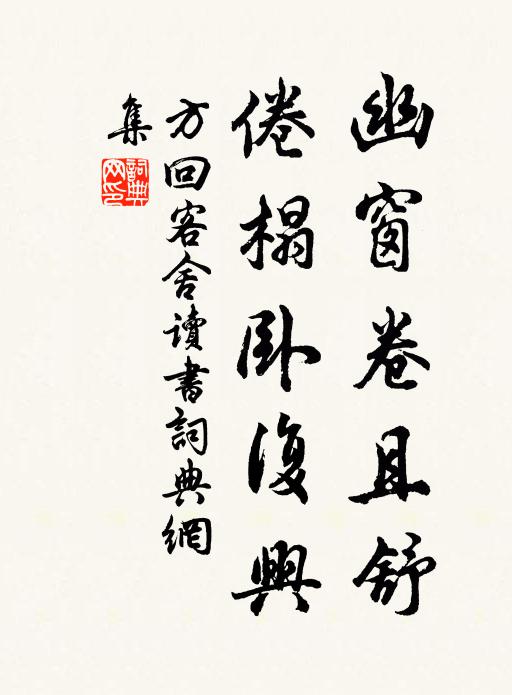 幽窗卷且舒
倦榻卧復興
方回客舍讀書詞典網
集
詞典
网印